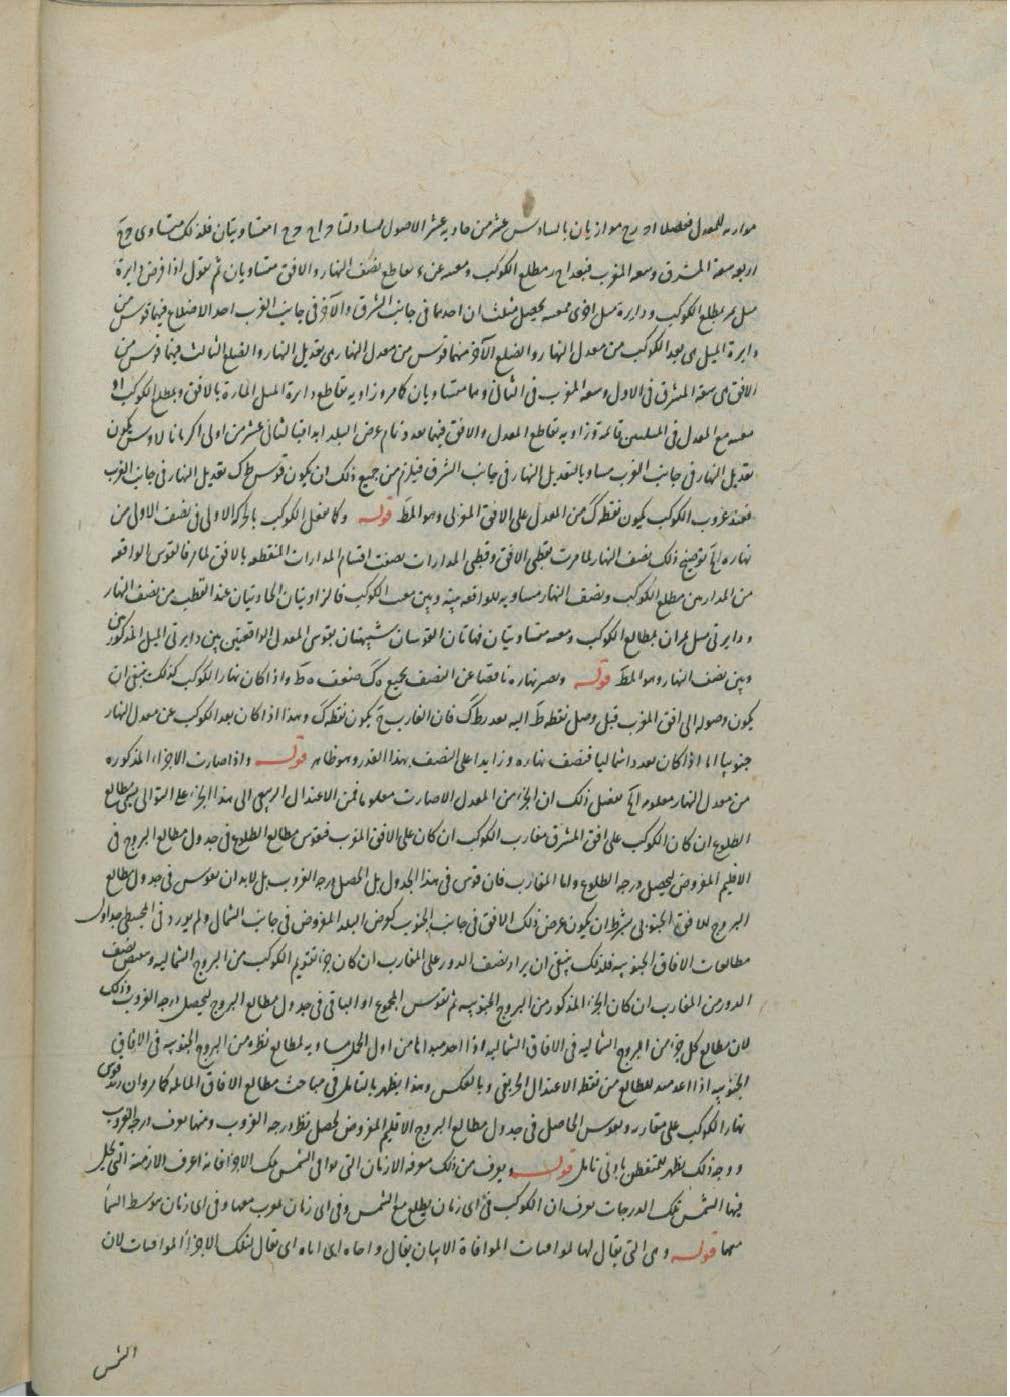 موازيه للمعدل ففصلا اح رح موازيان بالسادس عشر من حاديه عشر الاصول
اربعه سعة المشرق وسعه المغرب فبعد مطلع الكوكب ومغيبه عن تقاطع نصف النهار والافق متساويان ثم نقول اذا فرض دايرة
ميل تمر بمطلع الكوكب ودايرة ميل اخرى بمغيبه يحصل مثلثان احدهما فى جانب الشرق والآخر فى جانب الغرب احد الاضلاع فيهما قوس من
دايرة الميل هى بعد الكوكب من معدل النهار والضلع الآخر منهما قوس من معدل النهار هى تعديل النهار والضلع الثالث فيهما قوس من
الافق هى سعة المشرق فى الاول وسعه المغرب فى الثانى وهما متساويان كما مر وزاويه تقاطع دايرة الميل المارة بالافق وبمطلع الكوكب او
مغيبه مع المعدل فى المثلثين قائمة وزاويه تقاطع المعدل والافق فيهما بعد تمام عرض البلد من اولى اكر مانالاوس يكون
تعديل النهار فى جانب الغرب مساويا لتعديل النهار فى جانب الشرق فيلزم من جميع ذلك ان يكون قوس ط ك تعديل النهار فى جانب الغرب
فعند غروب الكوكب يكون نقطه ك من المعدل على الافق الغربى وهو المط قوله وكما يفعل الكوكب بالحركة الاولى فى نصف الاول من
نهاره الخ توضيح ذلك نصف النهار لما مرت بقطبى الافق وقطبى المدارات نصفت اقسام المدارات المنقطعه بالافق لما مر فالقوس الواقعه
من المدار بين مطلع الكوكب ونصف النهار مساويه للواقعه بينه وبين مغيب الكوكب فالزاويتان الحادثتان عند القطب من نصف النهار
ودايرتى ميل تمران بمطالع الكوكب ومغيبه متساويتان فهاتان القوسان شبيهتان بقوسى المعدل الواقعتين بين دايرتى الميل المذكورتين
وبين نصف النهار وهو المط قوله ويصير نهاره ناقصا عن النصف بجميع ه ك ضعف ه ط واذا كان نهار الكوكب كذلك ينبغى ان
يكون وصوله الى افق المغرب قبل وصل نقطه ط اليه بعد ط ك فان الغارب ح يكون نقطه ك وهذا اذا كان بعد الكوكب عن معدل النهار
جنوبيا اما اذا كان بعده شماليا فنصف نهاره زايدا على النصف بهذا القدر وهو ظاهر قوله واذا صارت الاجزاء المذكوره
من معدل النهار معلومه الخ تفصيل ذلك ان الجزء من المعدل اذا صارت معلوما فمن الاعتدال الربيعى الى هذا الجزء على التوالى يسمى مطالع
الطلوع ان كان الكوكب على افق المشرق مغارب الكوكب ان كان على الافق المغرب فنقوس مطالع الطلوع فى جدول مطالع البروج فى
الاقليم المفروض ليحصل درجه الطلوع واما المغارب فان قوس فى هذا الجدول بل لم يحصل درجه الغروب بل لابد ان يقوس فى جدول مطالع
البروج للافق الجنوبى بشرط ان يكون عرض ذلك الافق فى جانب الجنوب كعرض البلد المفروض فى جانب الشمال ولم يورد فى المجسطى جداول
مطالعات الافاق الجنوبيه فلذلك ينبغى ان يزاد نصف الدور على المغارب ان كان جزء تقويم الكوكب من البروج الشماليه وينقص نصف
الدور من المغارب ان كان الجزء المذكور من البروج الجنوبيه ثم نقوس المجموع او الباقى فى جدول مطالع البروج ليحصل درجه الغروب وذلك
لان مطالع كل جزء من البروج الشماليه فى الافاق الشماليه اذا اخذ مبداها من اول الحمل مساويه لمطالع نظيره من البروج الجنوبيه فى الافاق
الجنوبيه اذا اخذ مبدء المطالع من نقطه الاعتدال الخريفى وبالعكس وهذا يظهر بالتامل فى مباحث مطالع الافاق المائله كما مر وان زيد قوس
نهار الكوكب على مقارب وقوس الحاصل فى جدول مطالع البروج الاقليم المفروض تحصل نظير درجه الغروب ومنها يعرف درجه الغروب
ووجه ذلك يظهر للمتفطن بادنى تامل قوله ويعرف من ذلك معرفه الازمان التى توافى الشمس تلك الاجزاء فانه اذا عرف الازمنة التى تحل
فيها الشمس تلك الدرجات يعرف ان الكوكب فى اى زمان يطلع مع الشمس وفى اى زمان يغرب معها وفى اى زمان يتوسط السماء
معها قوله وهى التى يقال لها الموافيات الموافاة الاتيان يقال وافاه اى اتاه اى يقال لتلك الاجزاء الموافيات لان
الشمس